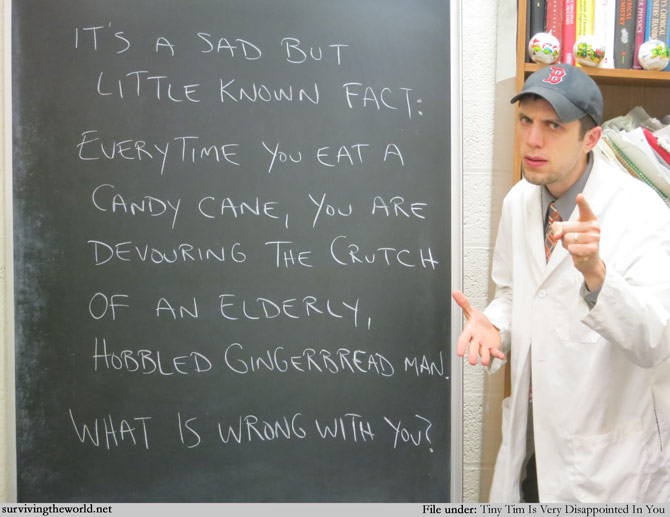 IT'S A SAD BUT
LITTLE KNOWN FACT:
EVERYTIME YOU EAT A
CANDY CANE, YOU ARE
DEVOURING THE CRUTCH
OF AN ELDERLY,
HOBBLED GINGERBREAD MAN.
WHAT IS WRONG WITH YOU?
B
survivingtheworld.net
File under: Tiny Tim Is Very Disappointed In You